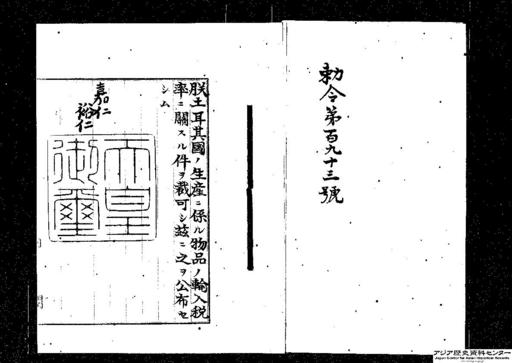 勅令第百九十三號
朕土耳其國ノ生産ニ係ル物品ノ輸入税
率ニ關スル件ヲ裁可シ玆ニ之ヲ公布セ
シム
嘉仁
裕仁
天皇
御璽
アジア歴史資料センター
Japan Center for Asian Historical Records